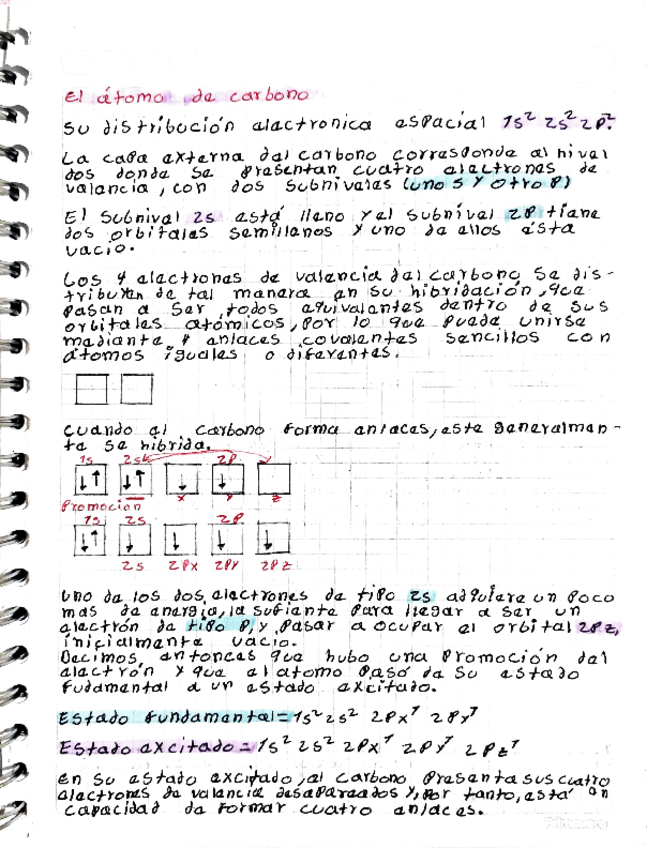 El átomo de carbono
Su distribución electronica espacial 1s² 2s² 2p².
La capa externa del carbono corresponde al nivel
dos donde se presentan cuatro electrones de
valencia, con dos subniveles (uno s y otro p)
El subnivel 2s está lleno y el subnivel 2p tiene
dos orbitales semillenos y uno de ellos ésta
vacio.
Los 4 electrones de valencia del carbono se dis-
tribuyen de tal manera en su hibridación, que
pasan a ser todos equivalentes dentro de sus
orbitales atómicos, por lo que puede unirse
mediante 4 enlaces covalentes sencillos con
átomos iguales o diferentes.
Cuando el carbono forma enlaces, este generalmen-
te se hibrida.
1s 2s 2p
↓↑ ↓↑ ↓ ↓
x y z
Promoción
1s 2s 2p
↓↑ ↓ ↓ ↓ ↓
2s 2px 2py 2pz
Uno de los dos electrones de tipo 2s adquiere un poco
mas de energia, la sufiente para llegar a ser un
electrón de tipo p, y pasar a ocupar el orbital 2pz,
inicialmente vacio.
Decimos entonces que hubo una promoción del
electrón y que el atomo pasó de su estado
fudamental a un estado excitado.
Estado fundamental = 1s² 2s² 2px¹ 2py¹
Estado excitado = 1s² 2s² 2px¹ 2py¹ 2pz¹
En su estado excitado, el carbono presenta sus cuatro
electrones de valencia desapareados y, por tanto, está en
capacidad de formar cuatro enlaces.